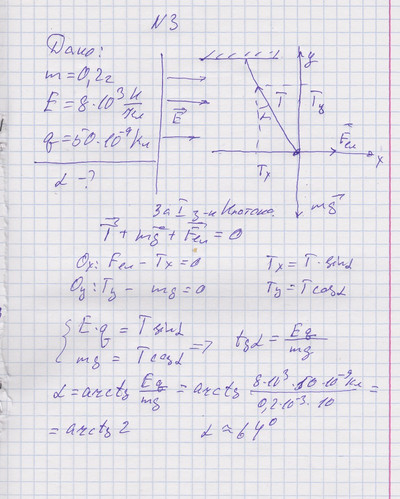 N3
Дано:
m=0,2г
E=8·10³ Н/Кл
q=50·10⁻⁹ Кл
α-?
E
y
T
Ty
Fел
Tx
x
mg
За I з-н Ньютона.
T + mg + Fел = 0
Ox: Fел - Tx = 0
Tx = T·sinα
Oy: Ty - mg = 0
Ty = T cosα
{ E·q = T sinα
mg = T cosα => tgα = Eq/mg
α = arctg Eq/mg = arctg 8·10³·50·10⁻⁹Кл/0,2·10⁻³·10 =
= arctg 2
α ≈ 64°